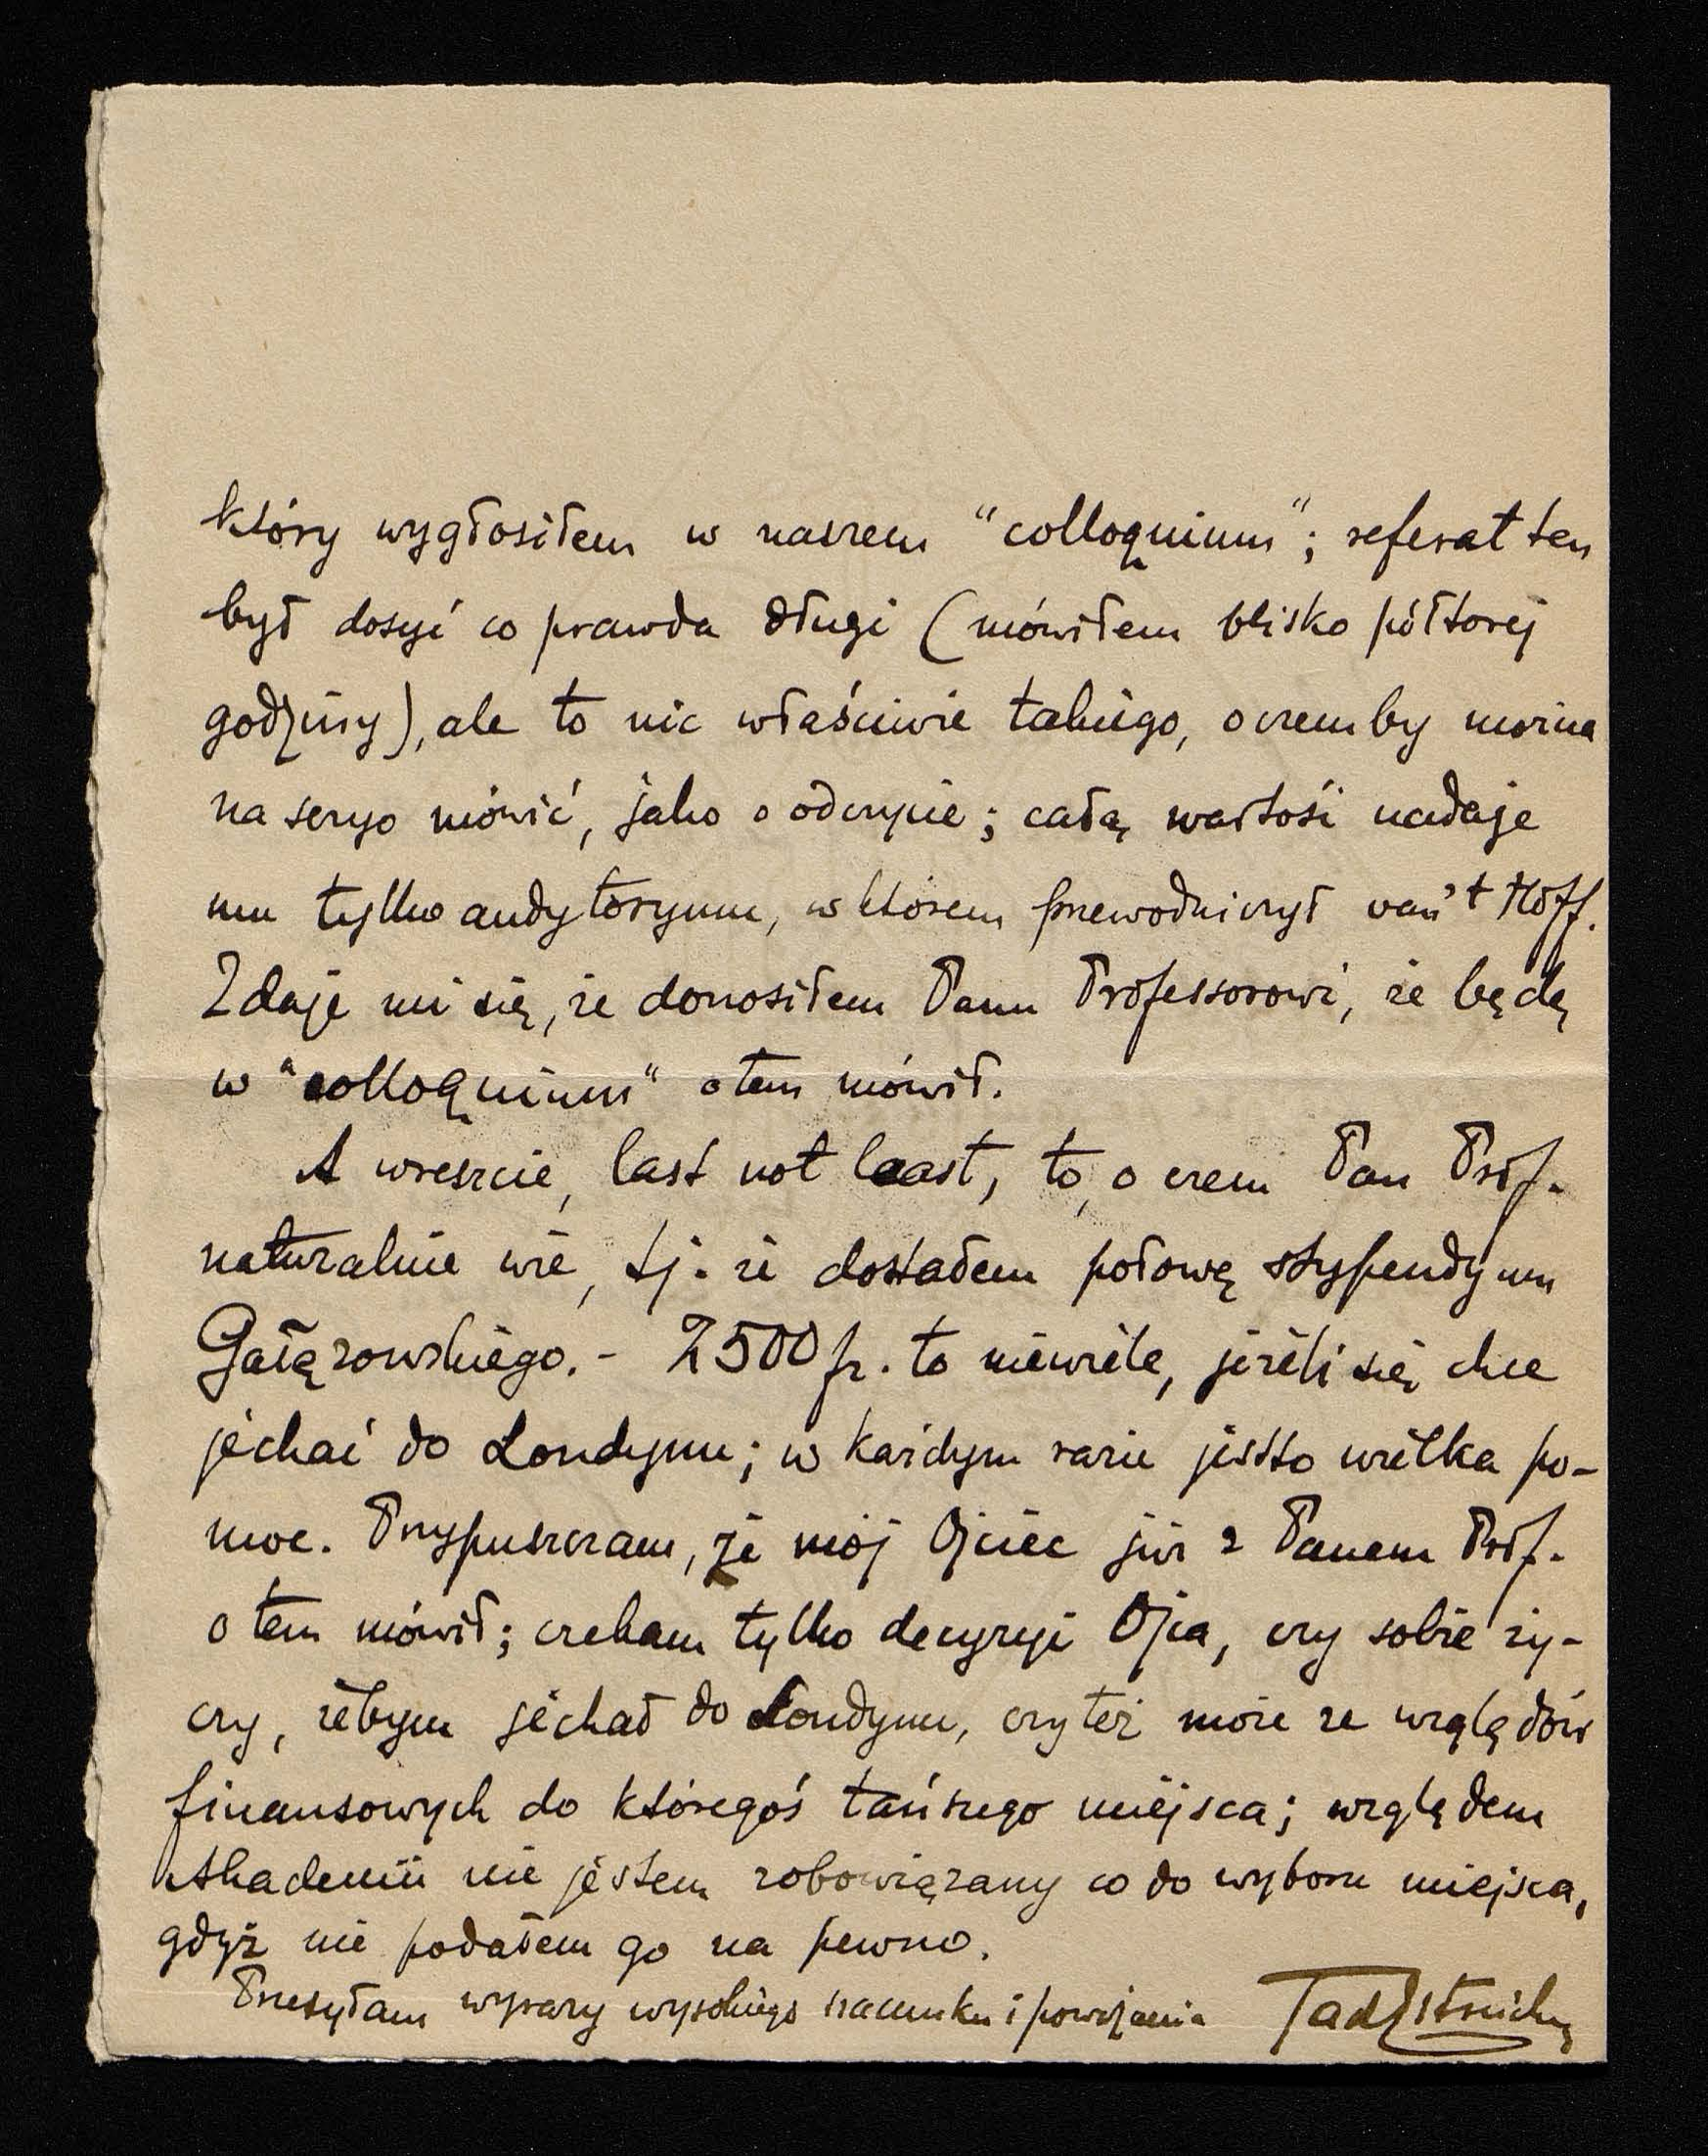 który wygłosiłem w naszem "colloquium"; referat ten
był dosyć co prawda długi (mówiłem blisko półtorej
godziny), ale to nic właściwie takiego, o czemby można
na seryo mówić, jako o odczycie; całą wartość nadaje
mu tylko audytoryum, w którem przewodniczył van't Hoff.
Zdaje mi się, że donosiłem Panu Professorowi, że będę
w "colloquium" o tem mówił.
A wreszcie, last not least, to, o czem Pan Prof.
naturalnie wie, tj. że dostałem połowę stypendyum
Gałęzowskiego. - 2500 fr. to niewiele, jeżeli się chce
jechać do Londynu; w każdym razie jestto wielka po-
moc. Przypuszczam, że mój Ojciec już z Panem Prof.
o tem mówił; czekam tylko decyzyi Ojca, czy sobie ży-
czy, żebym jechał do Londynu, czy też może ze względów
finansowych do któregoś tańszego miejsca; względem
Akademii nie jestem zobowiązany co do wyboru miejsca,
gdyż nie podałem go na pewno.
Przesyłam wyrazy wysokiego szacunku i poważania Tad